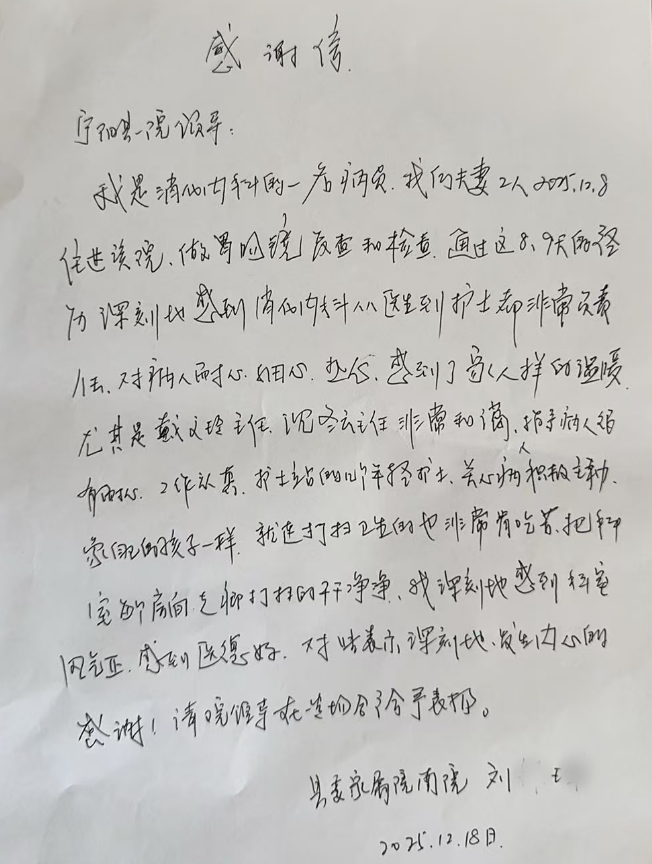 感谢信
宁阳县一院领导:
我是消化内科的一名病员.我们夫妻2人2025.12.8
住进该院、做胃肠镜复查和检查.通过这8、9天的经
历深刻地感到消化内科从医生到护士都非常负责
任、对病人耐心.细心.热心、感到了家人样的温暖.
尤其是戴文玲主任.沈冬云主任非常和蔼、指导病人很
有耐心.工作认真.护士站的几个年轻护士、关心病人积极主动.
象自己的孩子一样.就连打扫卫生的也非常肯吃苦.把科
室每个房间走廊打扫的干干净净、我深刻地感到科室
风气正.感到医德好.对此表示深刻地、发至内心的
感谢!请院领导在 场合给予表扬。
县委家属院南院 刘 王
2025.12.18日.